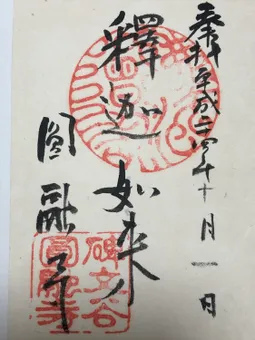 奉拝 平成二四年十月 日
釋迦如来
圓融寺
碑文谷
圓融寺